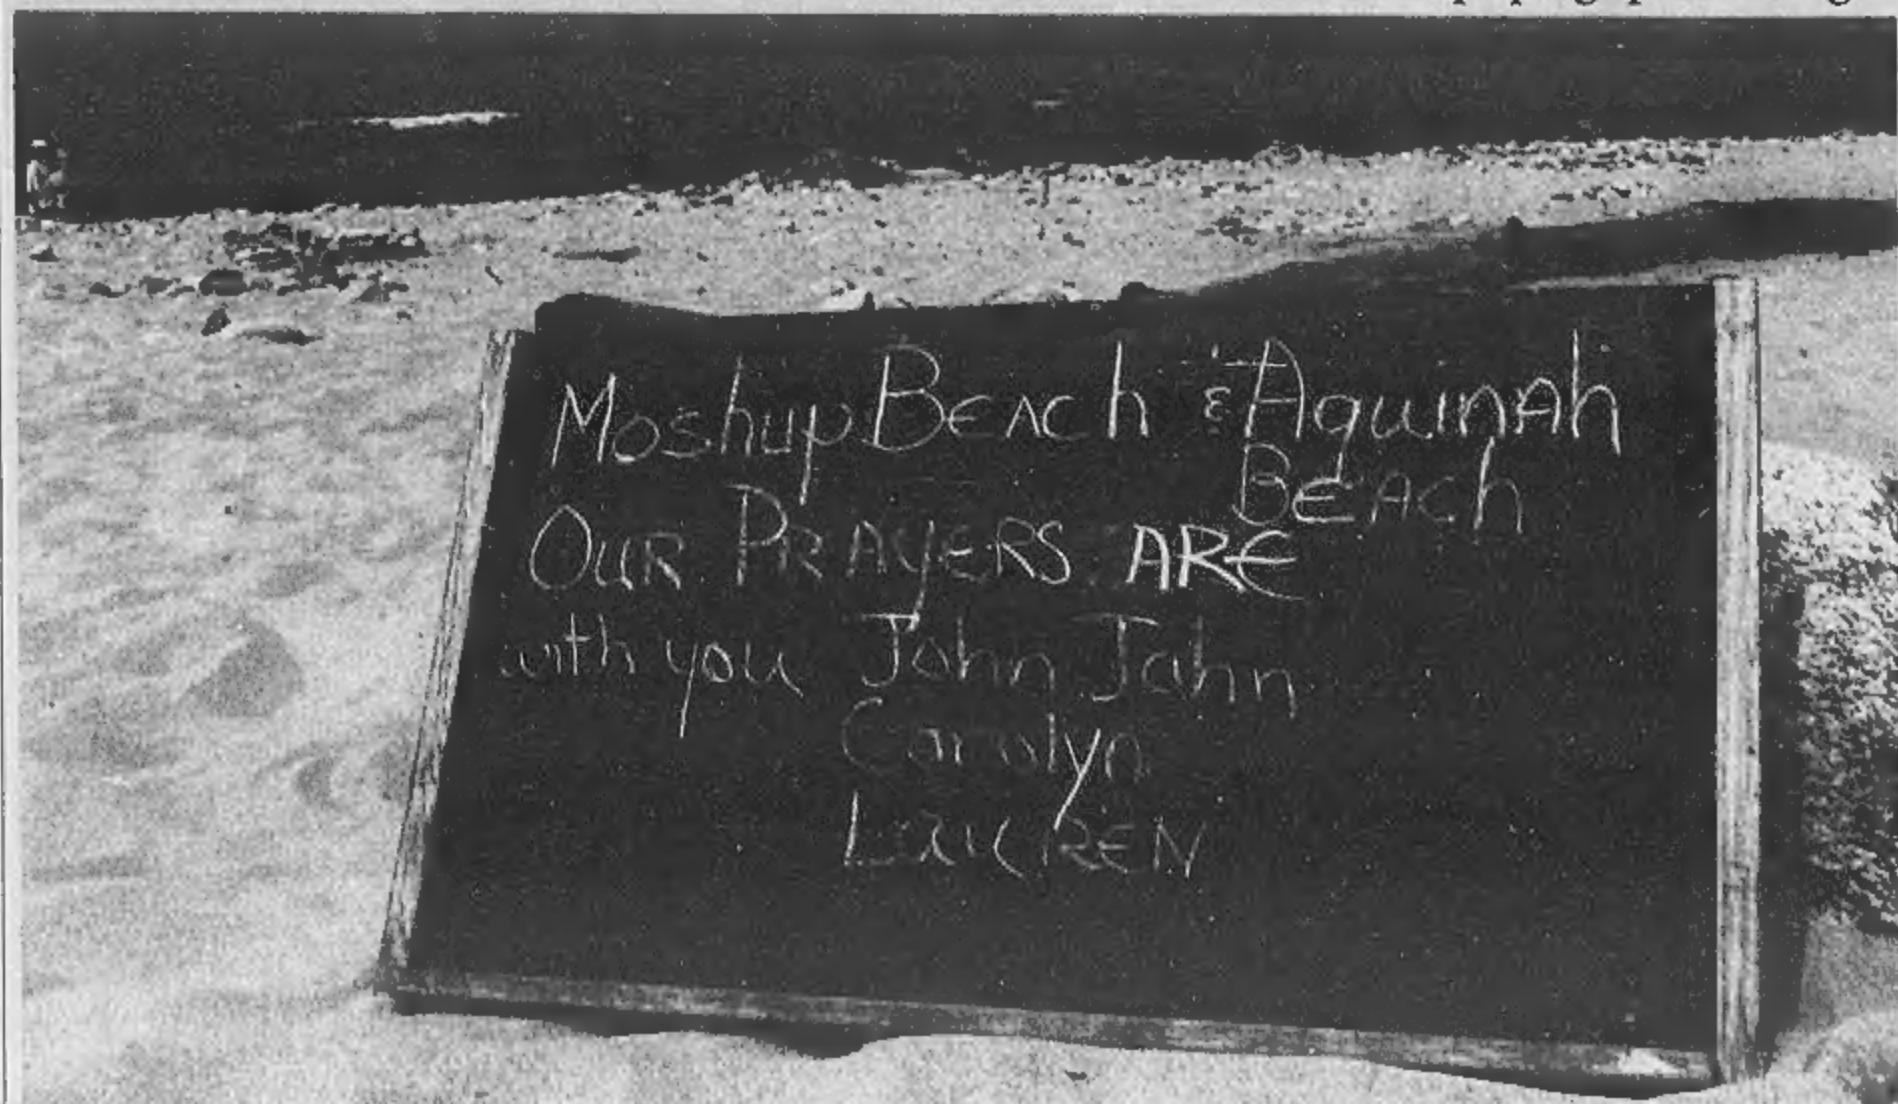 Moshup BEAch & AquinAh
BEAch
OUR PRAYERS ARE
with you John John
Carolyn
LAUREN